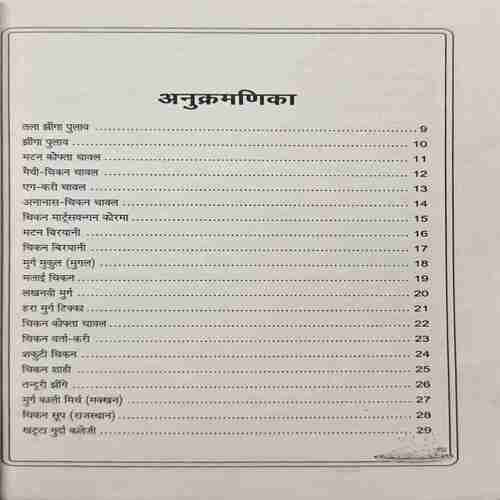 अनुक्रमणिका
तला झींगा पुलाव ........................ 9
झींगा पुलाव ........................ 10
मटन कोफ्ता चावल ........................ 11
मैथी-चिकन चावल ........................ 12
एग-करी चावल ........................ 13
अनानास-चिकन चावल ........................ 14
चिकन मार्ट्सवन्गन कोरमा ........................ 15
मटन बिरयानी ........................ 16
चिकन बिरयानी ........................ 17
मुर्ग मुकुल (मुगल) ........................ 18
मलाई चिकन ........................ 19
लखनवी मुर्ग ........................ 20
हरा मुर्ग टिक्का ........................ 21
चिकन कोफ्ता चावल ........................ 22
चिकन चर्ता-करी ........................ 23
शकुटी चिकन ........................ 24
चिकन शाही ........................ 25
तन्दूरी झींगे ........................ 26
मुर्ग काली मिर्च (मक्खन) ........................ 27
चिकन सूप (राजस्थान) ........................ 28
खट्टा गुर्दा कलेजी ........................ 29